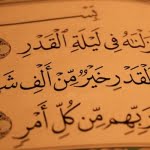 زَلْنَٰهُ فِى لَيْلَةِ ٱلْقَدْرِ
لْقَدْرِ خَيْرٌ مِّنْ أَلْفِ شَ
رَبِّهِم مِّن كُلِّ أَمْرٍ